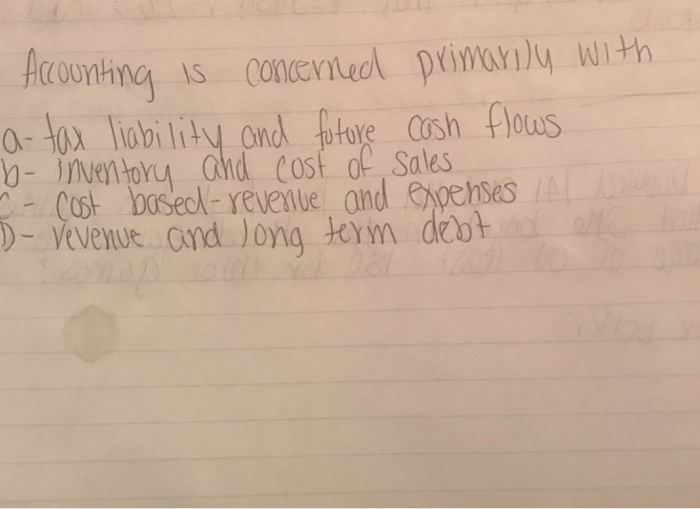 Accounting is concerned primarily with
a- tax liability and future cash flows
b- inventory and cost of sales
c- cost based-revenue and expenses
D- revenue and long term debt